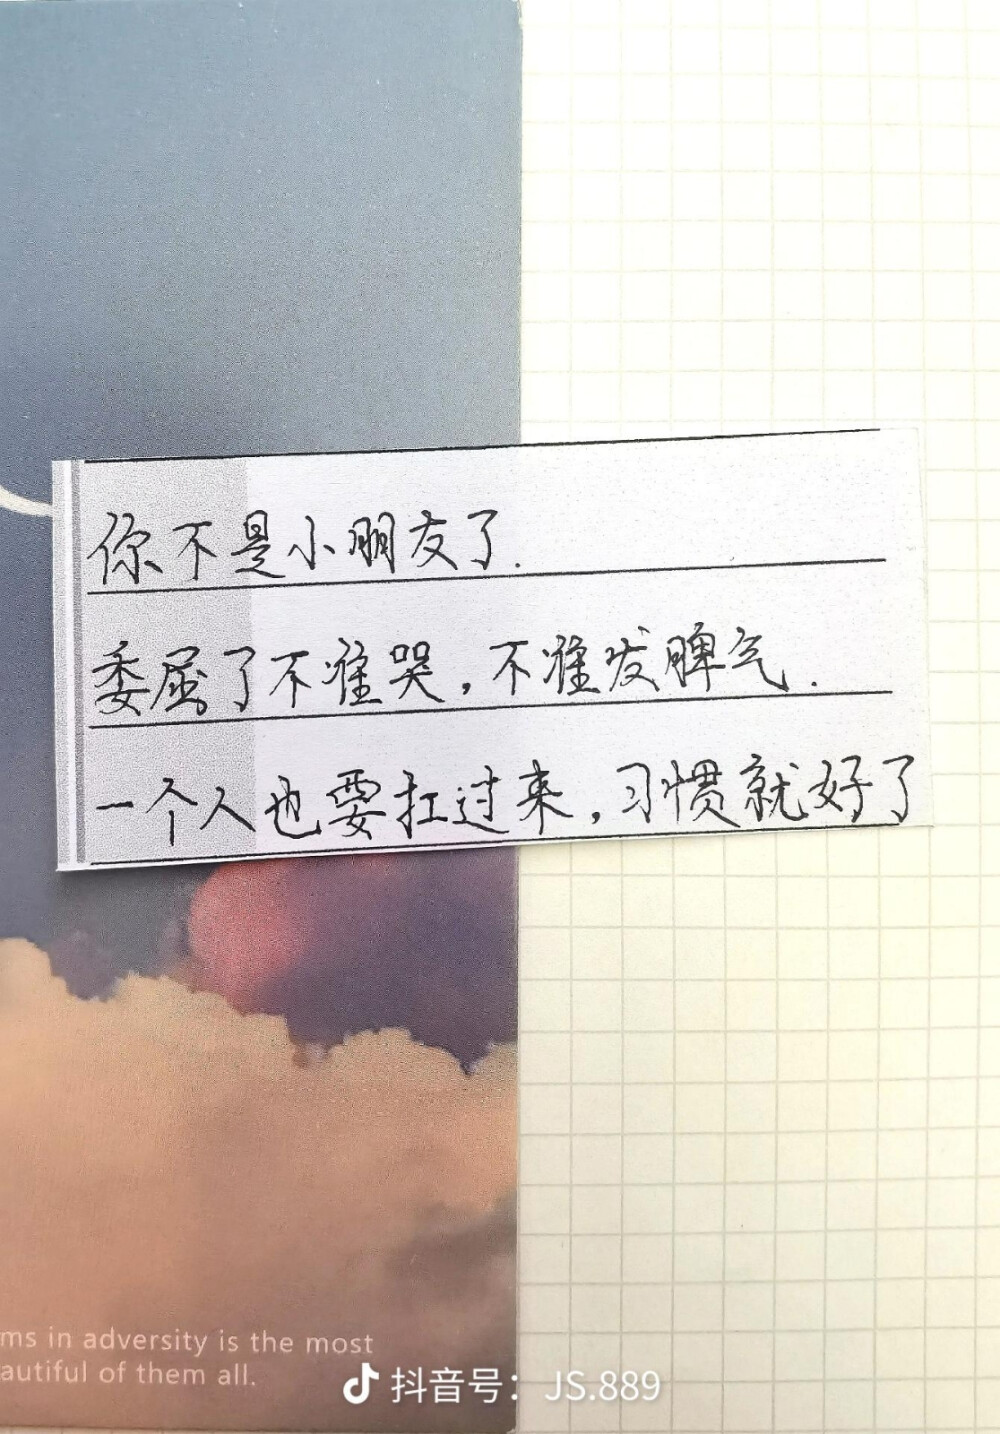 你不是小朋友了.
委屈了不准哭,不准发脾气.
一个人也要扛过来,习惯就好了
ms in adversity is the most
autiful of them all.
抖音号：JS.889